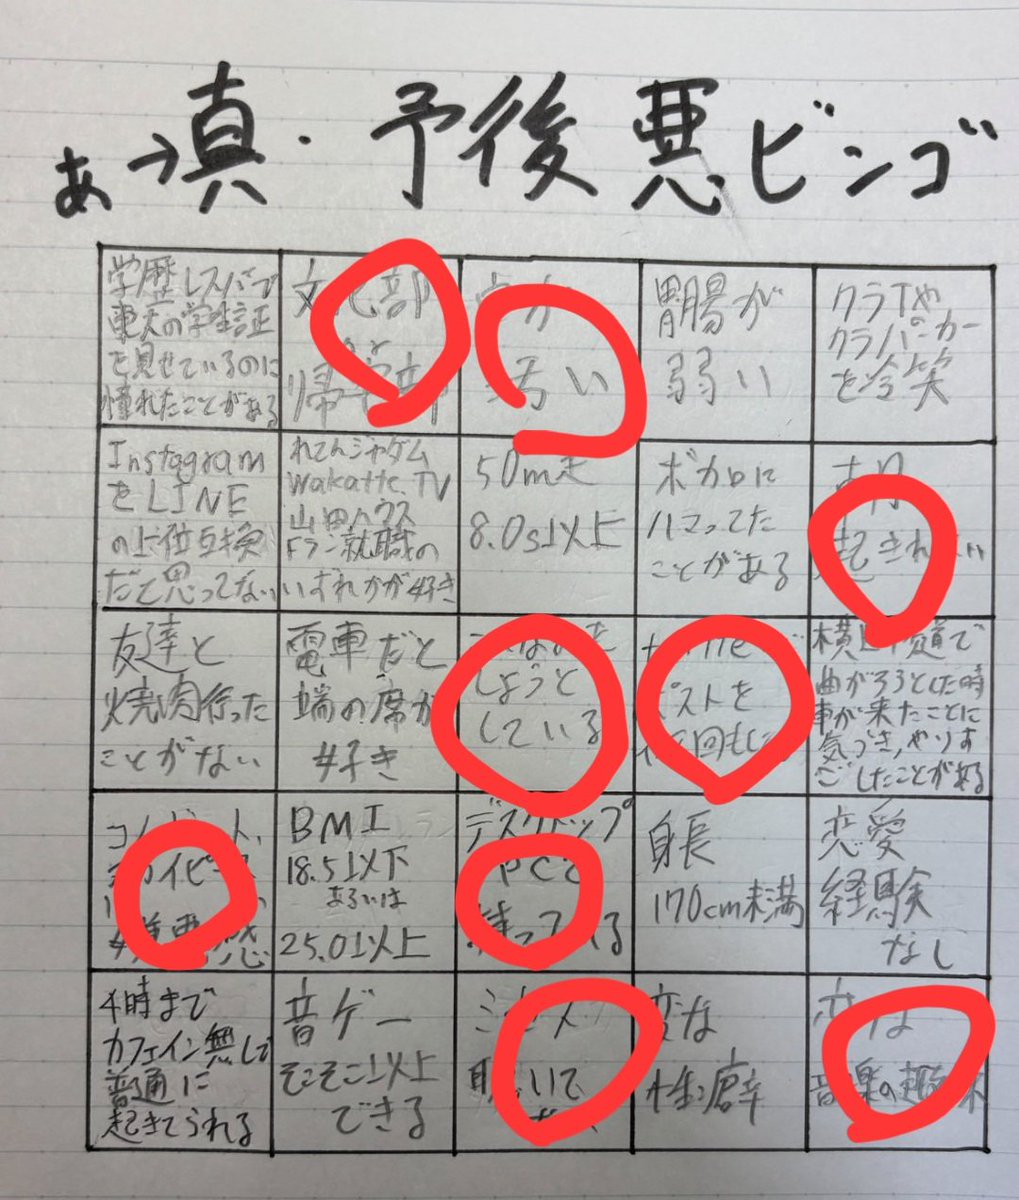 あ→真・予後悪ビンゴ
学歴レスバで
東大の学生証
を見せているのに
憧れたことがある
文化部
帰宅部
汚い
胃腸が
弱い
クラTや
クラパーカー
を冷笑
Instagram
をLINE
の上位互換
だと思ってない
れてんジャダム
Wakatte.TV
山田ハウス
Fラン就職の
いずれかが好き
50m走
8.0s以上
ボカロに
ハマってた
ことがある
起きれない
友達と
焼肉行った
ことがない
電車だと
端の席が
好き
しようと
している
ポストを
横断歩道で
曲がろうとした時
車が来たことに
気づき、やりす
ごしたことがある
BMI
18.5以下
あるいは
25.0以上
デスクトップ
PCを
持ってる
身長
170cm未満
恋愛
経験
なし
4時まで
カフェイン無しで
普通に
起きてられる
音ゲー
そこそこ以上
できる
変な
性癖
変な
音楽の趣味